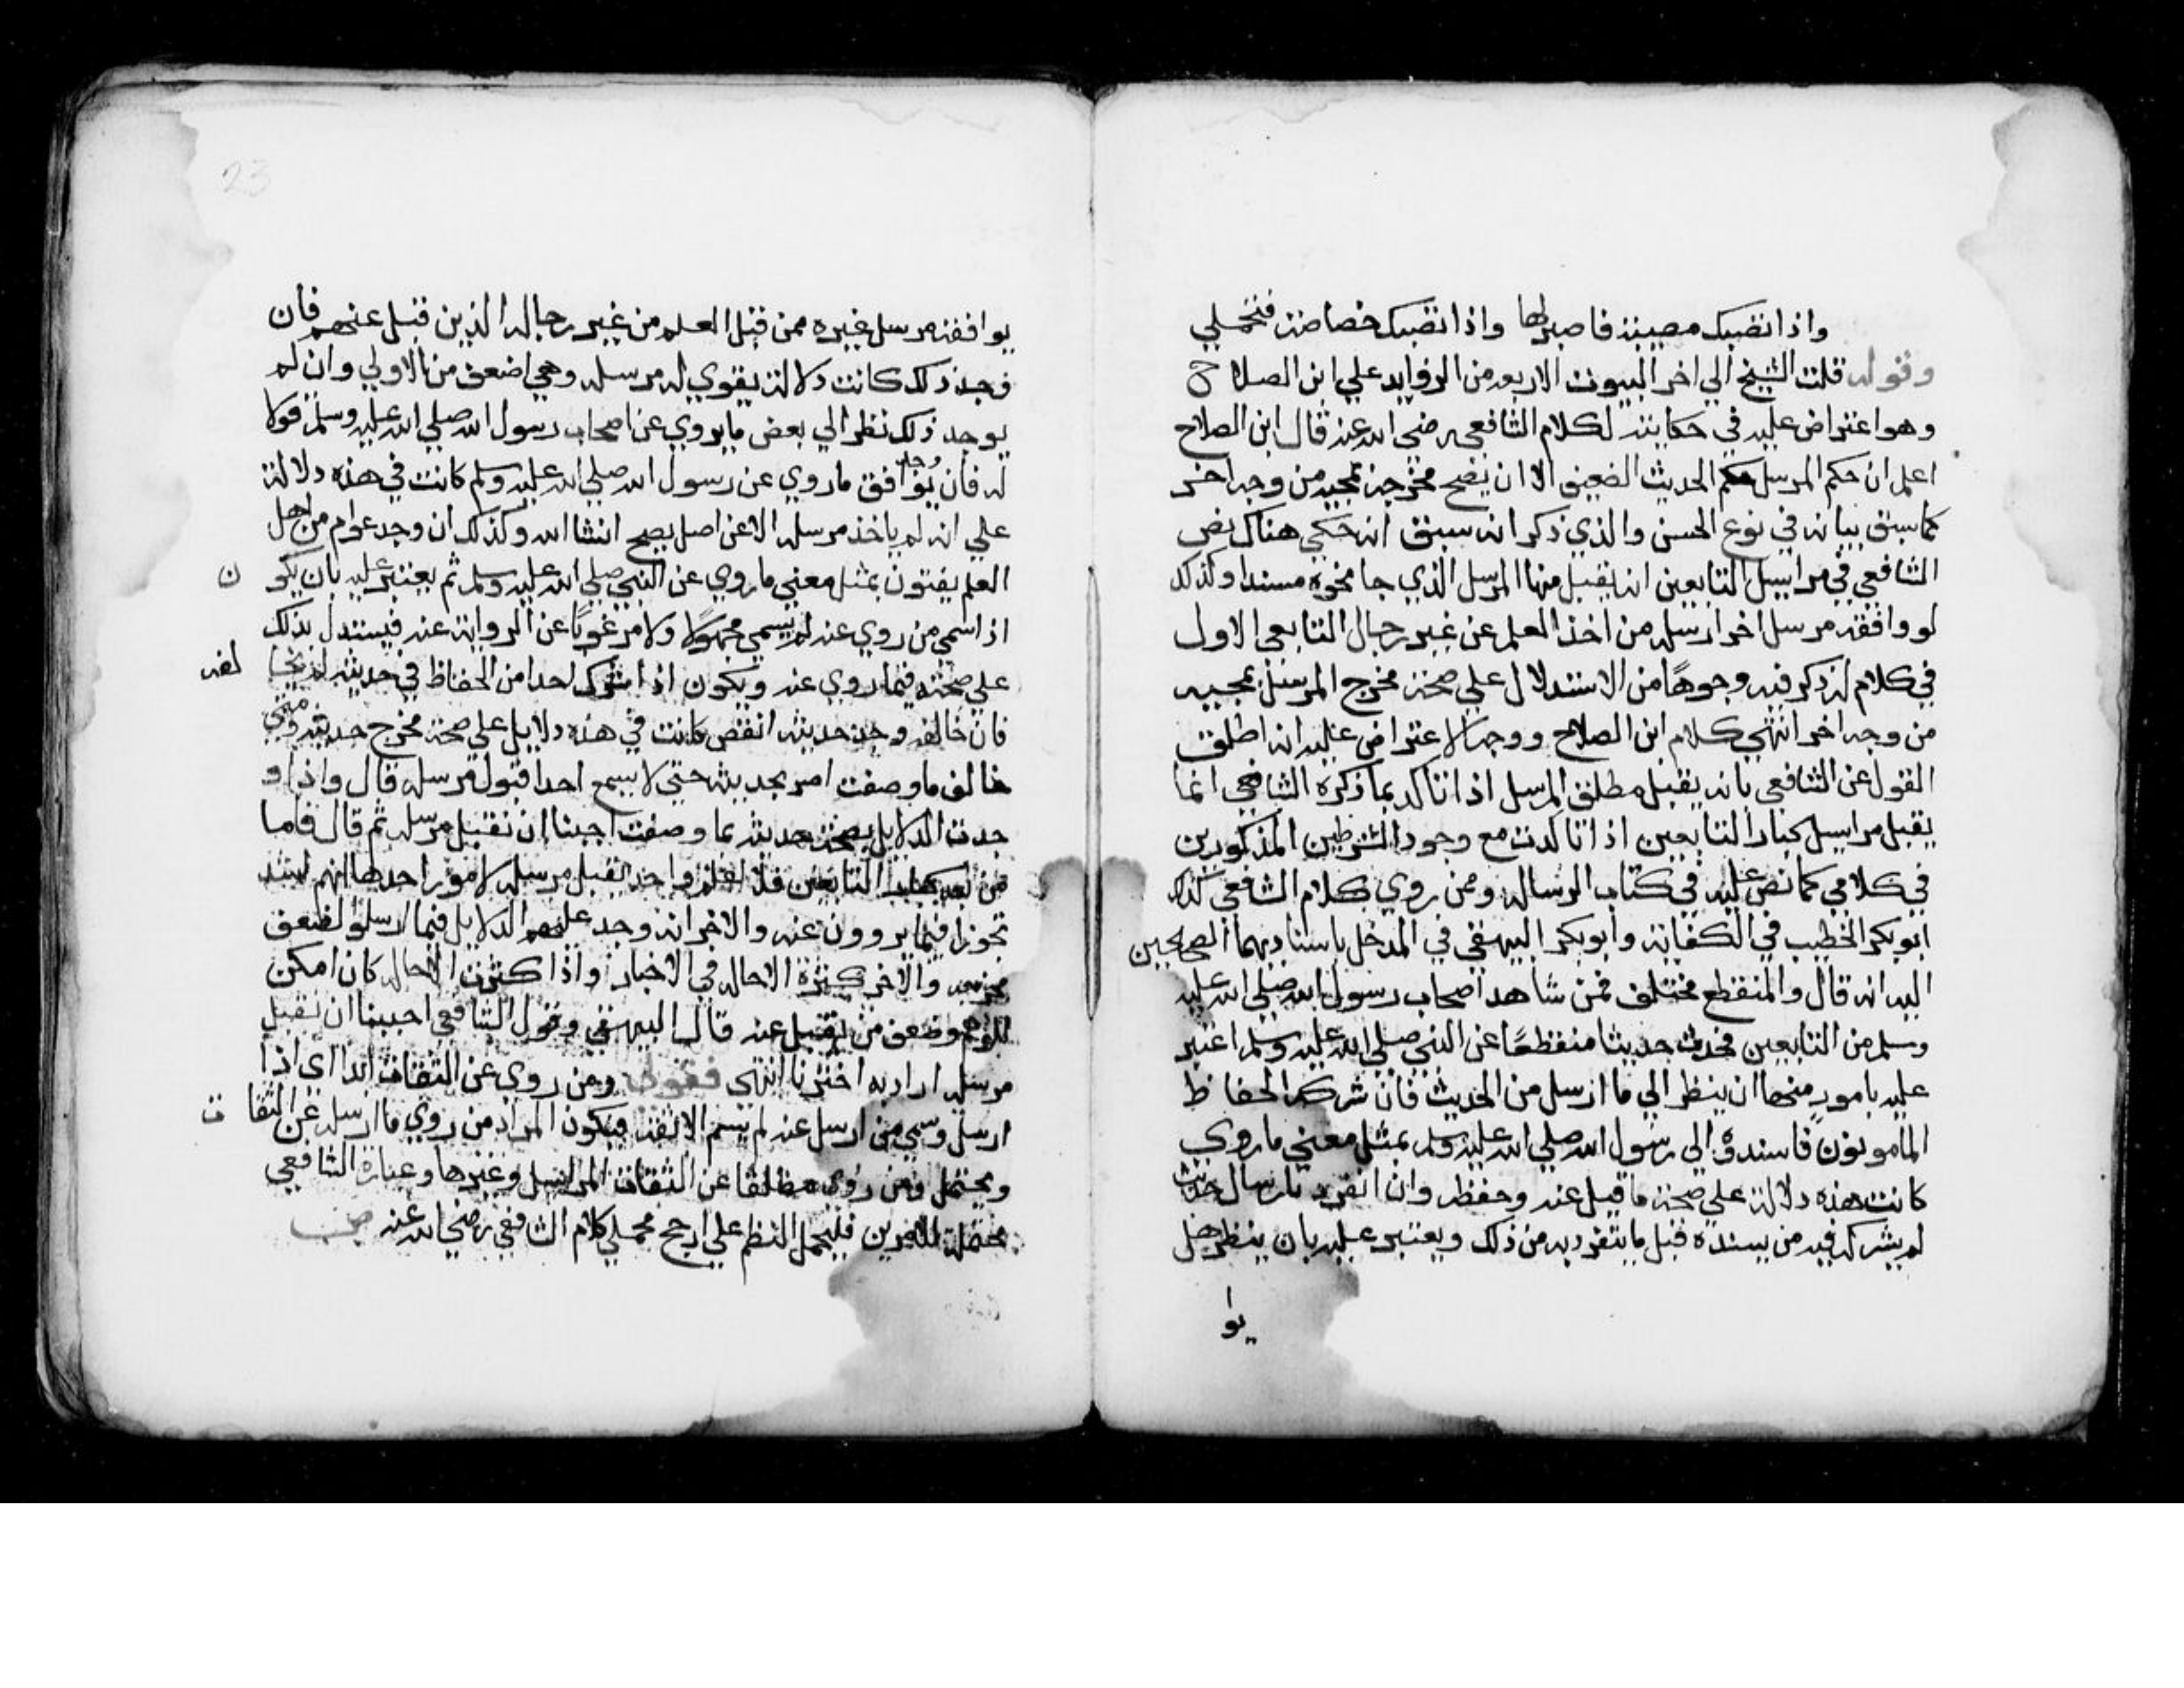 واذا تصبك مصيبة فاصبر لها واذا تصبك خصاصة فتجملي
وقوله قلت الشيخ الي اخر البيوت الاربعه من الزوايد علي ابن الصلاح
وهو اعتراض عليه في حكايته لكلام الشافعي رضي الله عنه قال ابن الصلاح
اعلم ان حكم المرسل حكم الحديث الضعيف الا ان يصح مخرجه بمجيه من وجه اخر
كما سبق بيانه في نوع الحسن والذي ذكر انه سبق انه حكي هناك نص
الشافعي في مراسيل التابعين انه يقبل منها المرسل الذي جا نحوه مسندا وكذلك
لو وافقه مرسل اخر ارسله من اخذ العلم عن غير رجال التابعي الاول
في كلام له ذكر فيه وجوهًا من الاستدلال علي صحة مخرج المرسل بمجيه
من وجه اخر انتهي كلام ابن الصلاح ووجه الاعتراض عليه انه اطلق
القول عن الشافعي بانه يقبل مطلق المرسل اذا تاكد بما ذكره الشافعي انما
يقبل مراسيل كبار التابعين اذا تاكدت مع وجود الشرطين المذكورين
في كلامي كما نص عليه في كتاب الرساله وممن روي كلام الشافعي كذلك
ابو بكر الخطيب في الكفاية وابو بكر البيهقي في المدخل باسناديهما الصحيحين
اليه انه قال والمنقطع مختلف فمن شاهد اصحاب رسول الله صلي الله عليه
وسلم من التابعين فحدث حديثا منقطعًا عن النبي صلي الله عليه وسلم اعتبر
عليه بامورٍ منها ان ينظر الي ما ارسل من الحديث فان شركه الحفاظ
المامونون فاسندوه الي رسول الله صلي الله عليه وسلم بمثل معني ما روي
كانت هذه دلالة علي صحة ما قبل عنه وحفظه وان انفرد بارسال حديث
لم يشركه فيه من يسنده قبل ما يتفرد به من ذلك ويعتبر عليه بان ينظر هل
يوا
23
يوافقه مرسل غيره ممن قبل العلم من غير رجاله الذين قبل عنهم فان
وجد ذلك كانت دلالة يقوي له مرسله وهي اضعف من الاولي وان لم
يوجد ذلك نظر الي بعض ما يروي عن اصحاب رسول الله صلي الله عليه وسلم قولا
له فان وجد يوافق ما روي عن رسول الله صلي الله عليه وسلم كانت في هذه دلالة
علي انه لم ياخذ مرسله الا عن اصل يصح انشا الله وكذلك ان وجد عوام من اهل
العلم يفتون بمثل معني ما روي عن النبي صلي الله عليه وسلم ثم يعتبر عليه بان يكون
اذا سمي من روي عنه لم يسمي مجهولًا ولا مرغوبًا عن الرواية عنه فيستدل بذلك
علي صحته فيما روي عنه ويكون اذا شرك احدا من الحفاظ في حديثه لم يخالفه
فان خالفه وجد حديثه انقص كانت في هذه دلايل علي صحة مخرج حديثه ومتي
خالف ما وصفت اضر بحديثه حتي لا يسمع احدا قبول مرسله قال واذا و
جدت الدلايل بصحة حديثه بما وصفت احببنا ان نقبل مرسله ثم قال فاما
من بعد كبار التابعين فلا اعلم واحدا يقبل مرسله لامور احدها انهم اشد
تجوزا فيما يروون عنه والاخر انه وجد عليهم الدلايل فيما ارسلو لضعف
مخرجه والاخر كثرة الاحاله في الاخبار واذا كثرت الاحاله كان امكن
للوهم وضعف من يقبل عنه قال البيهقي وقول الشافعي احببنا ان نقبل
مرسله اراد به اخترنا انتهي فقولي ومن روي عن الثقات ابدا اي اذا
ارسل وسمي من ارسل عنه لم يسم الا ثقة فيكون المراد من روي ما ارسله عن الثقات
ويحتمل ومن روي مطلقا عن الثقات المراسيل وغيرها وعبارة الشافعي
محتملة للامرين فليحمل النظم علي ارجح محملي كلام الشافعي رضي الله عنه